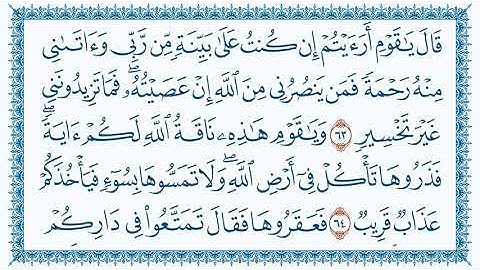 قَالَ يَٰقَوْمِ أَرَءَيْتُمْ إِن كُنتُ عَلَىٰ بَيِّنَةٍ مِّن رَّبِّى وَءَاتَىٰنِى
مِنْهُ رَحْمَةً فَمَن يَنصُرُنِى مِنَ ٱللَّهِ إِنْ عَصَيْتُهُۥ ۖ فَمَا تَزِيدُونَنِى
غَيْرَ تَخْسِيرٍ ٦٣ وَيَٰقَوْمِ هَٰذِهِۦ نَاقَةُ ٱللَّهِ لَكُمْ ءَايَةً ۖ
فَذَرُوهَا تَأْكُلْ فِىٓ أَرْضِ ٱللَّهِ ۖ وَلَا تَمَسُّوهَا بِسُوٓءٍ فَيَأْخُذَكُمْ
عَذَابٌ قَرِيبٌ ٦٤ فَعَقَرُوهَا فَقَالَ تَمَتَّعُوا۟ فِى دَارِكُمْ